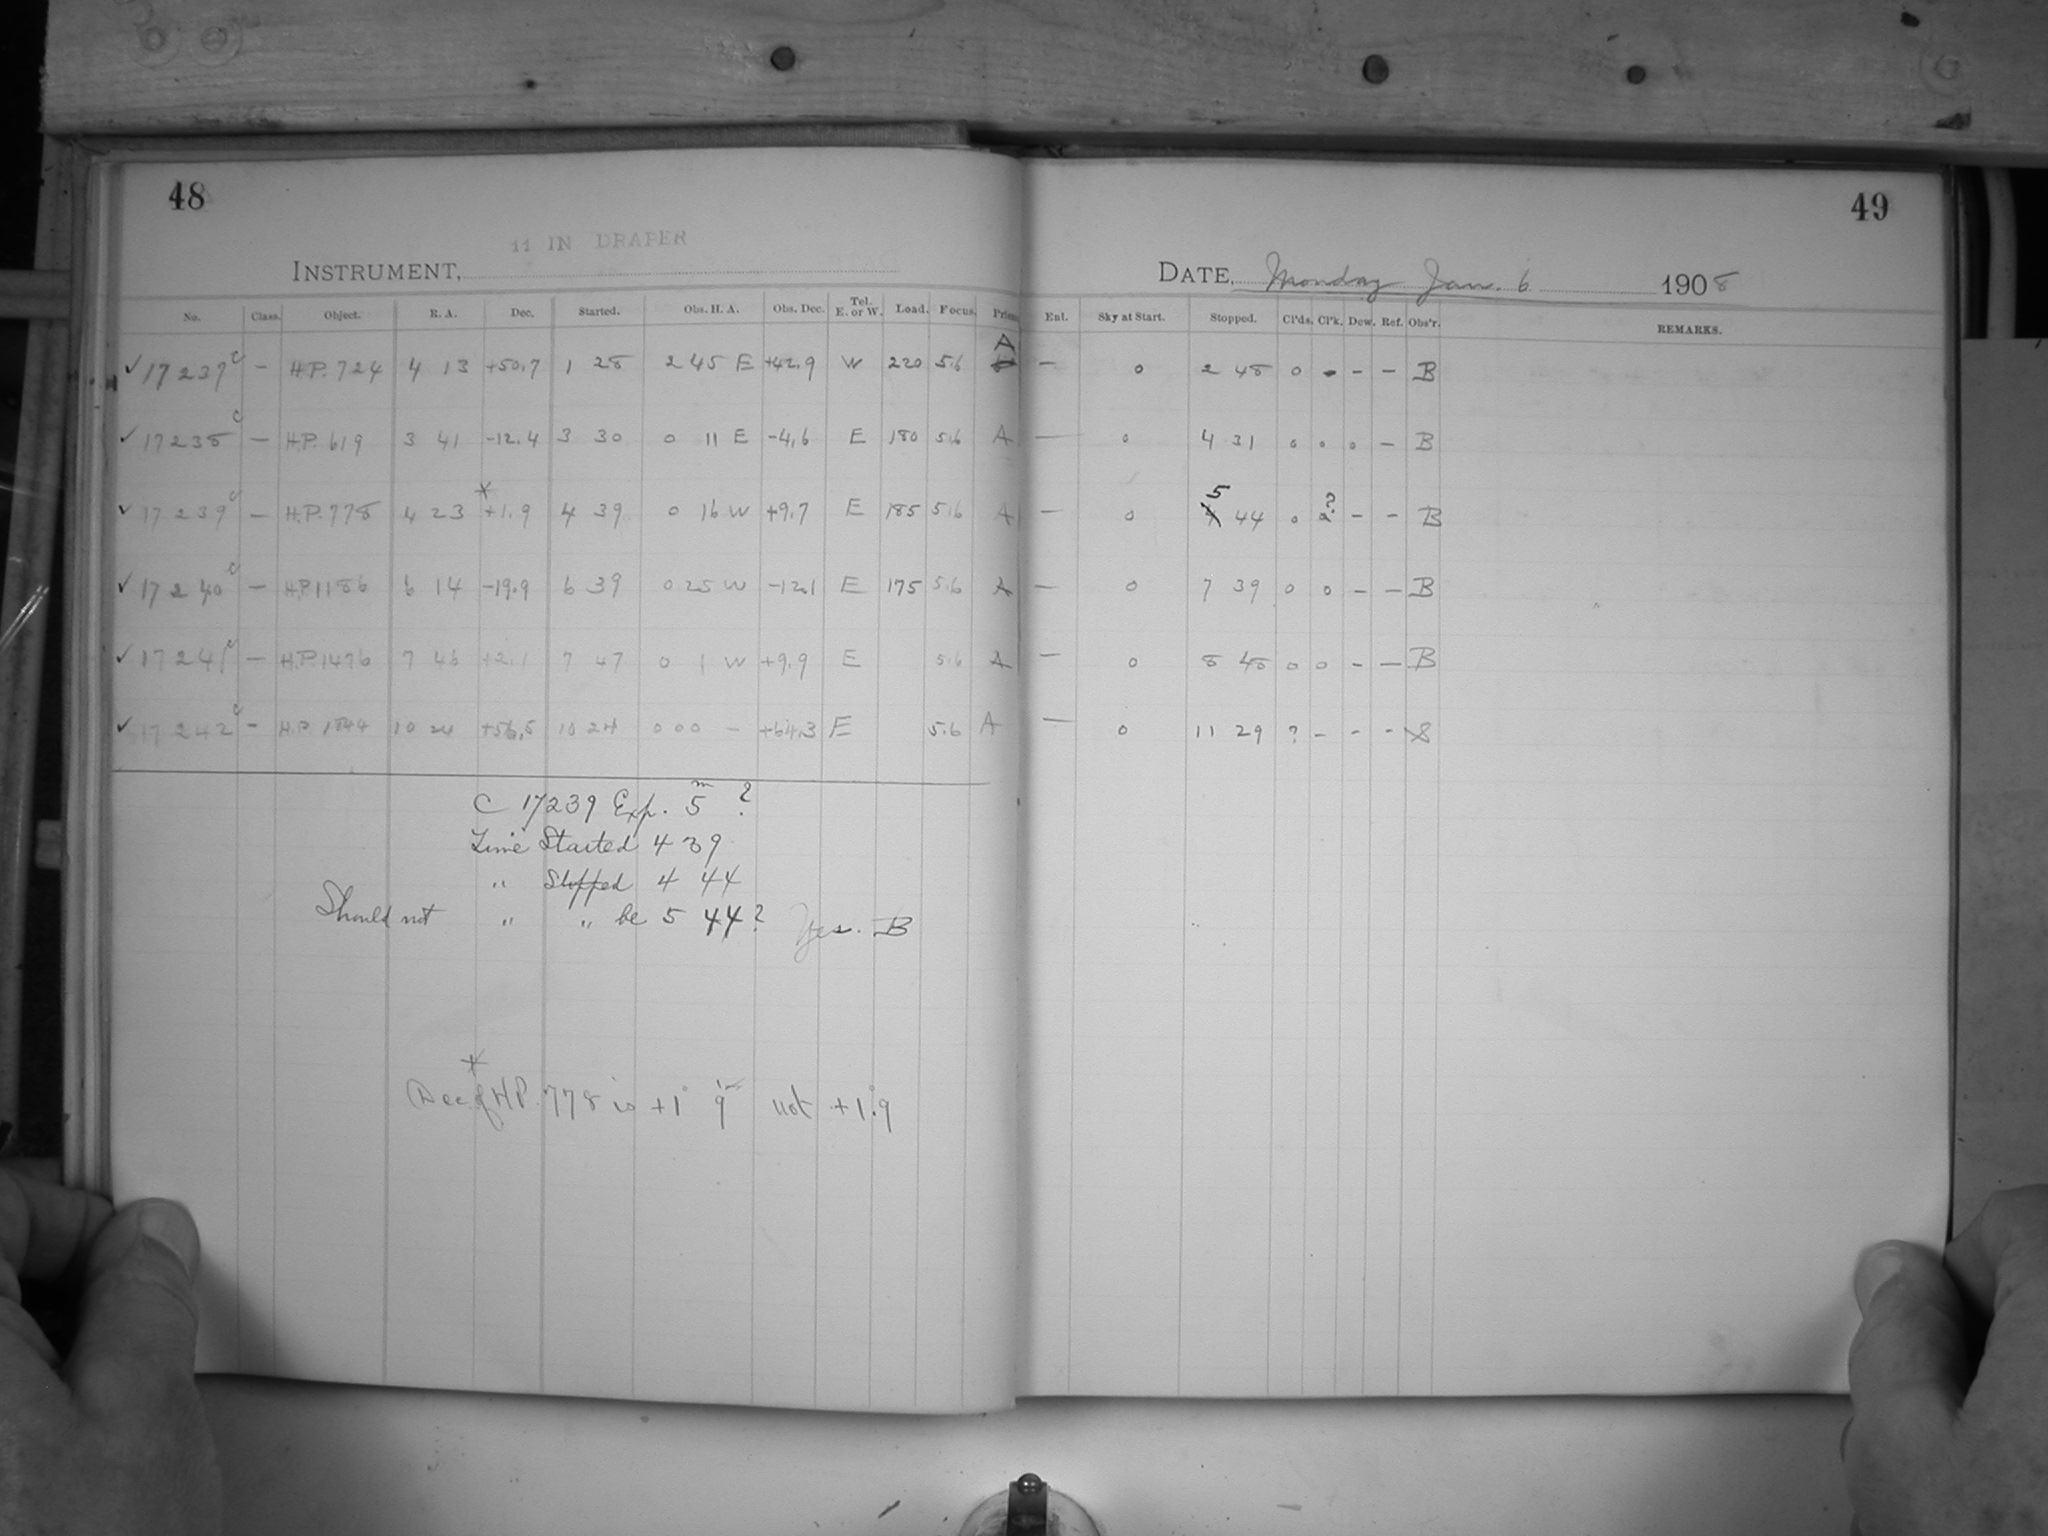 48
11 IN DRAPER
INSTRUMENT,
No. Class. Object. R. A. Dec. Started. Obs. H. A. Obs. Dec. Tel. E. or W. Load. Focus. Prism
A
✓ 17237 c — H.P. 724 4 13 +50.7 1 28 2 45 E +42.9 W 220 5.6
✓ 17238 c — H.P. 619 3 41 -12.4 3 30 0 11 E -4.6 E 180 5.6 A
*
✓ 17239 c — H.P. 778 4 23 +1.9 4 39 0 16 W +9.7 E 185 5.6 A
✓ 17240 c — H.P. 1186 6 14 -19.9 6 39 0 25 W -12.1 E 175 5.6 A
✓ 17241 c — H.P. 1476 7 46 +2.1 7 47 0 1 W +9.9 E 5.6 A
✓ 17242 c — H.P. 1844 10 24 +56.5 10 24 0 00 — +64.3 E 5.6 A
C 17239 Exp. 5 m ?
Time Started 4 39
" Stopped 4 44
Should not " " be 5 44? Yes. B
*
Dec. of H.P. 778 is +1° 9' not +1°.9
49
DATE, Monday Jan. 6 1908
Ent. Sky at Start. Stopped. Cl'ds. Cl'k. Dew. Ref. Obs'r. REMARKS.
— 0 2 48 0 - - - B
— 0 4 31 0 0 0 - B
5 ?
— 0 4 44 0 2 - - B
— 0 7 39 0 0 - - B
— 0 8 48 0 0 - - B
— 0 11 29 ? - - - S